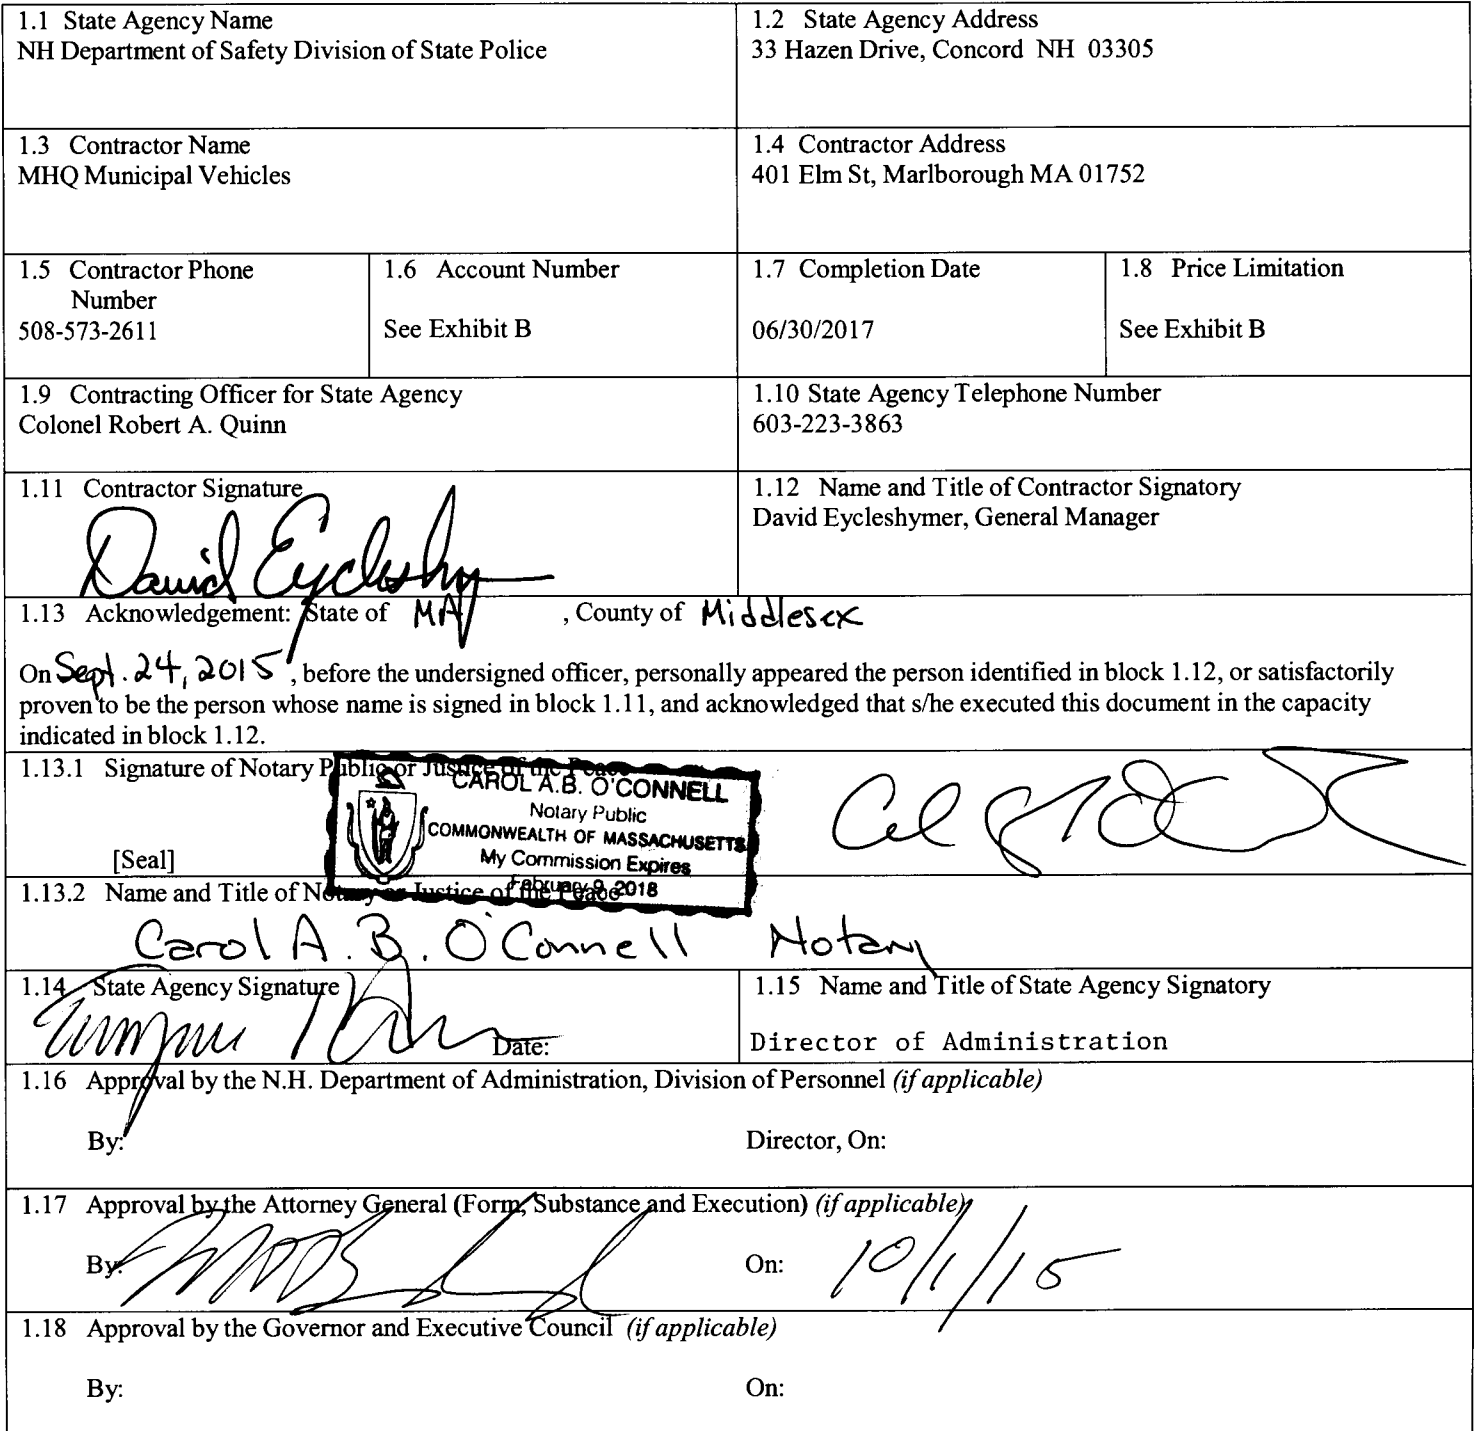 1.1 State Agency Name
NH Department of Safety Division of State Police
1.2 State Agency Address
33 Hazen Drive, Concord NH 03305
1.3 Contractor Name
MHQ Municipal Vehicles
1.4 Contractor Address
401 Elm St, Marlborough MA 01752
1.5 Contractor Phone
Number
508-573-2611
1.6 Account Number
See Exhibit B
1.7 Completion Date
06/30/2017
1.8 Price Limitation
See Exhibit B
1.9 Contracting Officer for State Agency
Colonel Robert A. Quinn
1.10 State Agency Telephone Number
603-223-3863
1.11 Contractor Signature
David
1.12 Name and Title of Contractor Signatory
David Eycleshymer, General Manager
1.13 Acknowledgement: State of MA , County of Middlesex
On Sept. 24, 2015 , before the undersigned officer, personally appeared the person identified in block 1.12, or satisfactorily
proven to be the person whose name is signed in block 1.11, and acknowledged that s/he executed this document in the capacity
indicated in block 1.12.
1.13.1 Signature of Notary Public or Justice of the Peace
CAROL A.B. O'CONNELL
Notary Public
COMMONWEALTH OF MASSACHUSETTS
My Commission Expires
February 9, 2018
[Seal]
1.13.2 Name and Title of Notary or Justice of the Peace
Carol A. B. O'Connell Notary
1.14 State Agency Signature
Date:
1.15 Name and Title of State Agency Signatory
Director of Administration
1.16 Approval by the N.H. Department of Administration, Division of Personnel (if applicable)
By: Director, On:
1.17 Approval by the Attorney General (Form, Substance and Execution) (if applicable)
By: On: 10/1/15
1.18 Approval by the Governor and Executive Council (if applicable)
By: On: